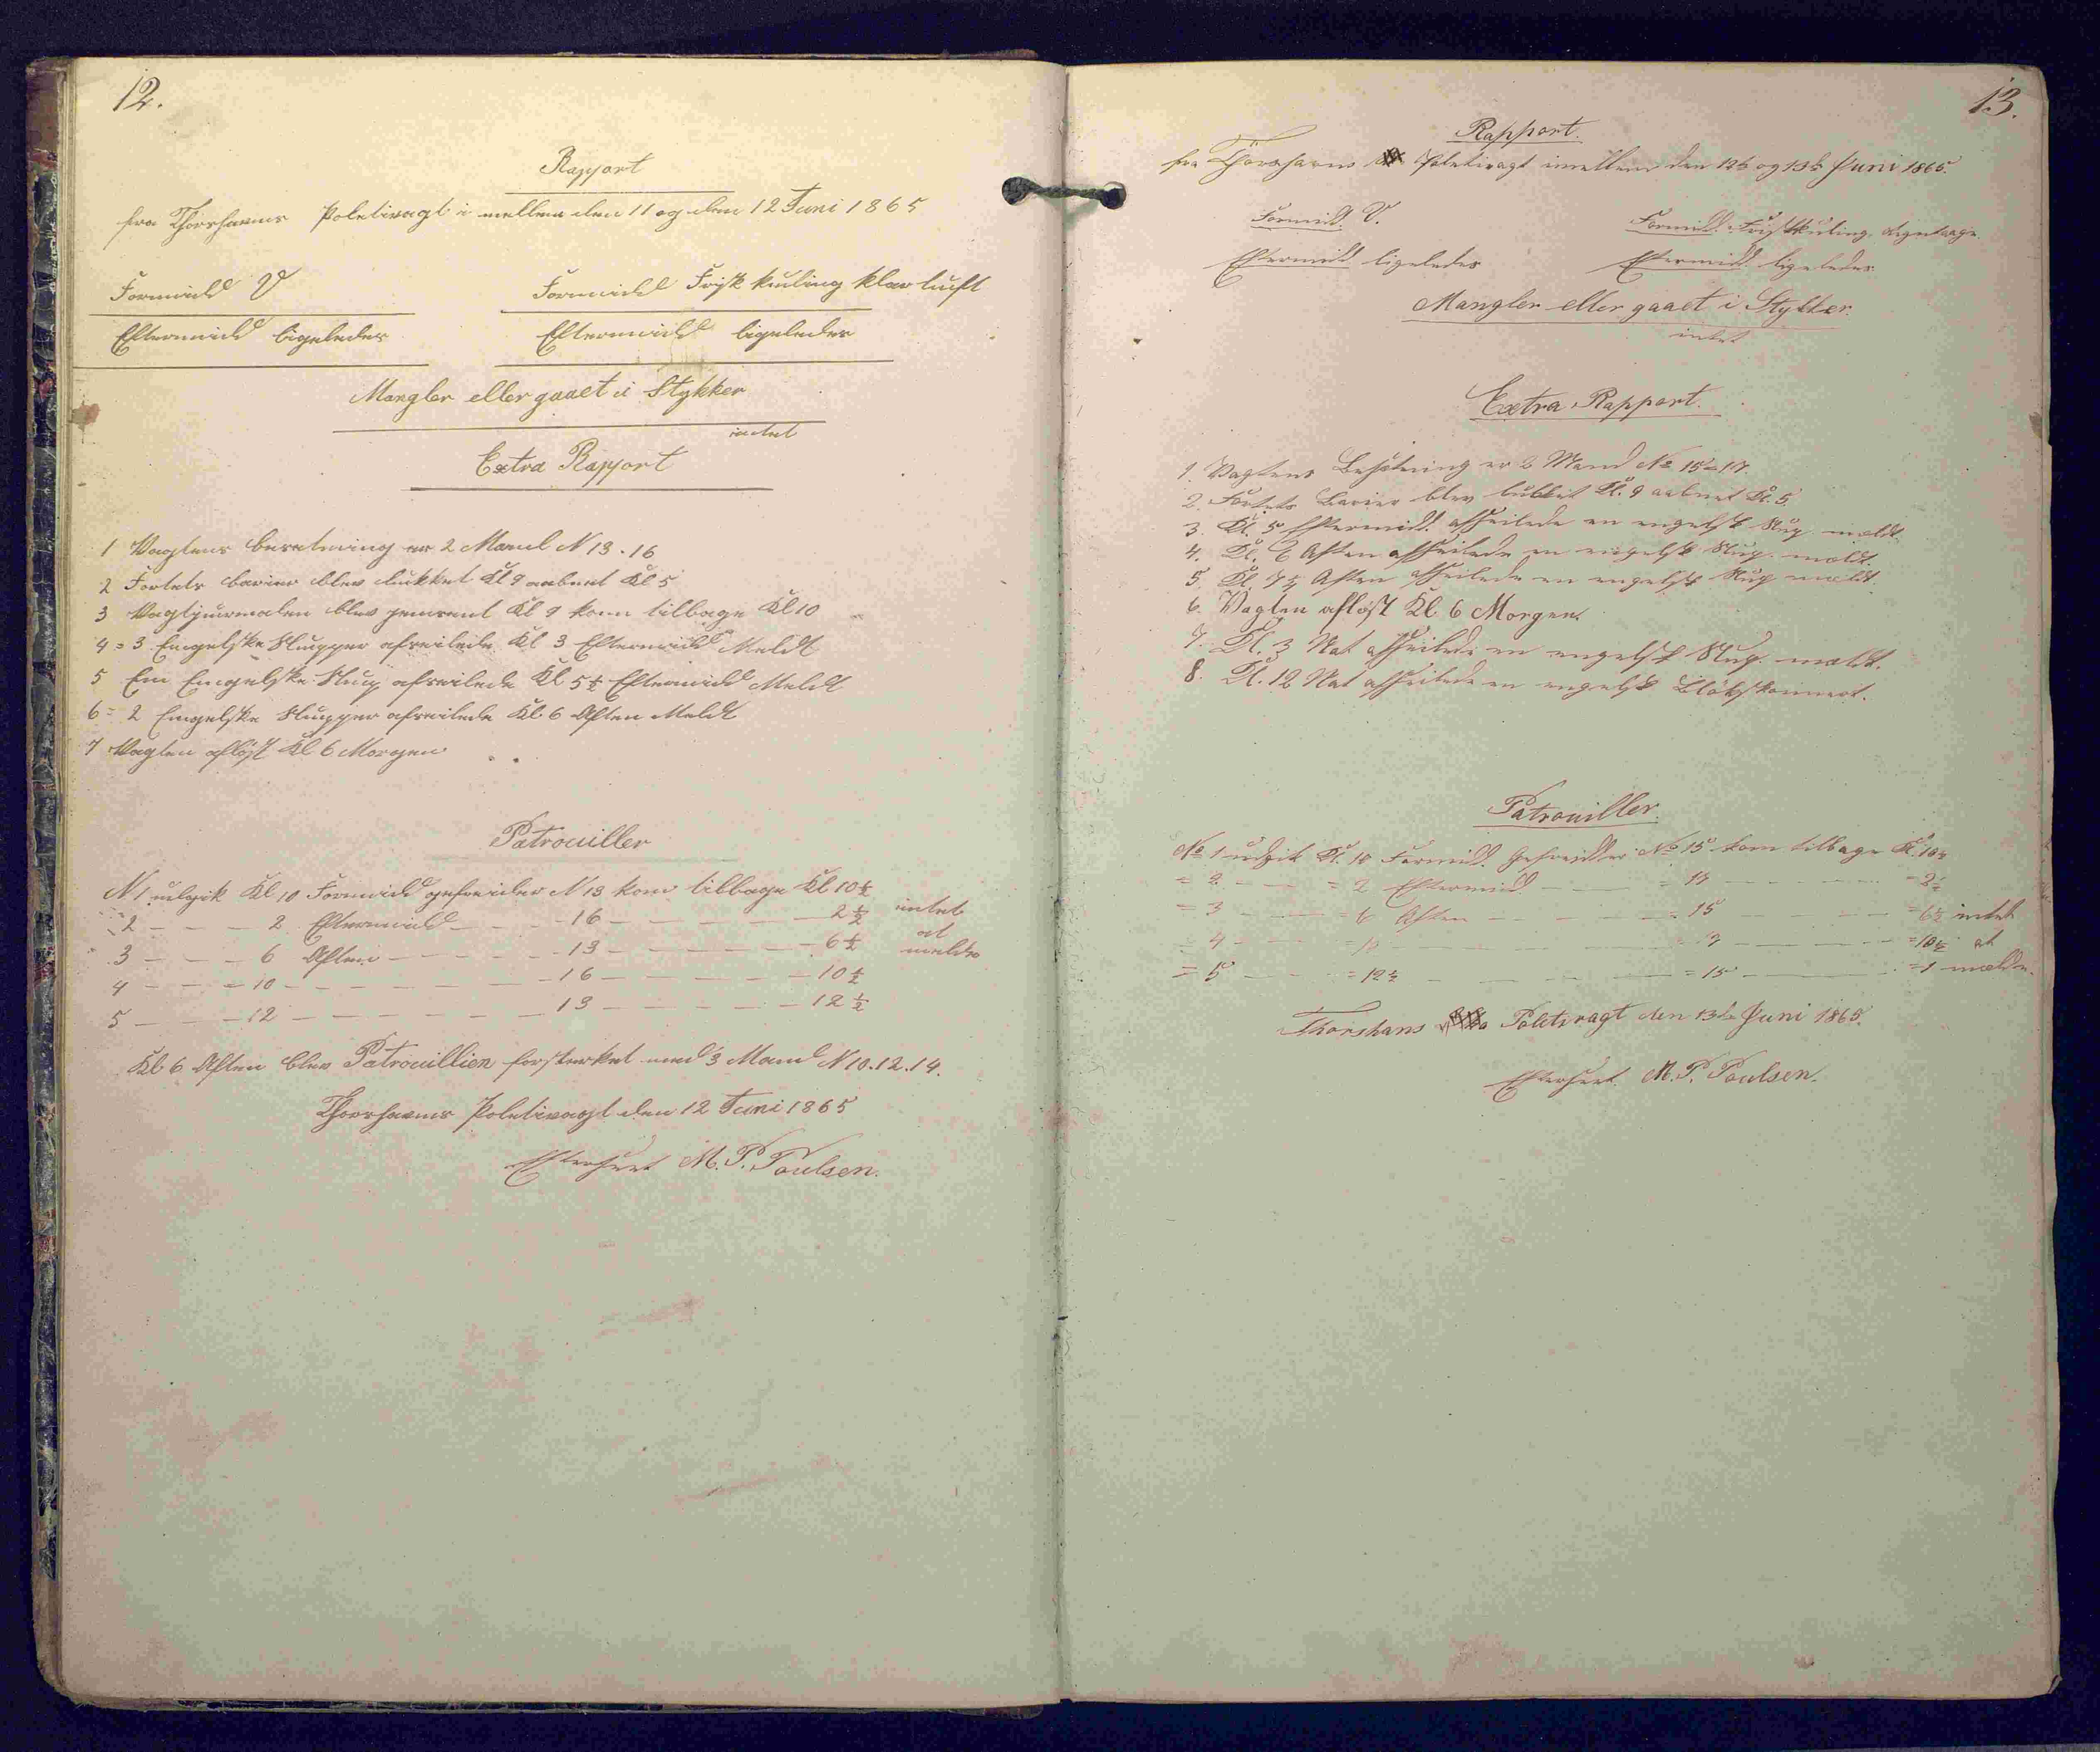 12.
Rapport
fra Thorshavns Politivagt i mellem den 11 og den 12 Juni 1865
Formidd V
Formidd Frisk kuling klar luft
Eftermidd ligeledes
Eftermidd ligeledes
Mangler eller gaaet i Stykker
intet
Extra Rapport
1 Vagtens besetning er 2 Mand N 13 · 16
2 Fortets barier blev lukket Kl 9 aabnet Kl 5
3 Vagtjournalen blev Kl 9 kom tilbage Kl 10
4 = 3 Engelske Slupper afseilede Kl 3 Eftermidd Meldt
5 Ein Engelske Slup afseilede Kl 5½ Eftermidd Meldt
6 = 2 Engelske Slupper afseilede Kl 6 Aften Meldt
7 Vagten afløst Kl 6 Morgen
Patrouiller
N 1 udgik Kl 10 Formidd gefreider N 13 kom tilbage Kl 10½ intet
2 — — — 2 Eftermidd — — 16 — — — — 2½ at
3 — — — 6 Aften — — — — 13 — — — — 6½ melde
4 — — = 10 — — — — — — 16 — — — — 10½
5 — — — 12 — — — — — — 13 — — — — 12½
Kl 6 Aften blev Patrouillien forsterket med 3 Mand N 10. 12. 14.
Thorshavns Politivagt den 12 Juni 1865
Efterseet M. P. Poulsen.
13.
Rapport.
fra Thorshavns Politivagt imellem den 12te og 13de Juni 1865.
Formidd. V.
Formidd. Frisk Kuling,
Eftermidd ligeledes
Eftermidd ligeledes
Mangler eller gaaet i Stykker.
intet
Extra Rapport.
1. Vagtens Besætning er 2 Mand No 15 = 17.
2. Fortets Barier blev lukket Kl. 9 aabnet Kl. 5.
3. Kl. 5 Eftermidd. afseilede en engelsk Slup meldt.
4. Kl. 6 Aften afseilede en engelsk Slup. meldt.
5. Kl. 7½ Aften afseilede en engelsk Slup meldt.
6. Vagten afløst Kl. 6 Morgen.
7. Kl. 3 Nat afseilede en engelsk Slup. meldt.
8. Kl. 12 Nat afseilede en engelsk
Patrouiller.
No 1 udgik Kl. 10 Formidd. Gefreider No 15 kom tilbage Kl. 10½
= 2 — — = 2 Eftermidd — — = 17 — — — = 2½
= 3 — — = 6 Aften — — — = 15 — — — = 6½ intet
= 4 — — = 10 — — — — = 17 — — — = 10½ at
= 5 — — = 12½ — — — — = 15 — — — = 1 melde.
Thorshavns Politivagt den 13de Juni 1865.
Efterseet M. P. Poulsen.